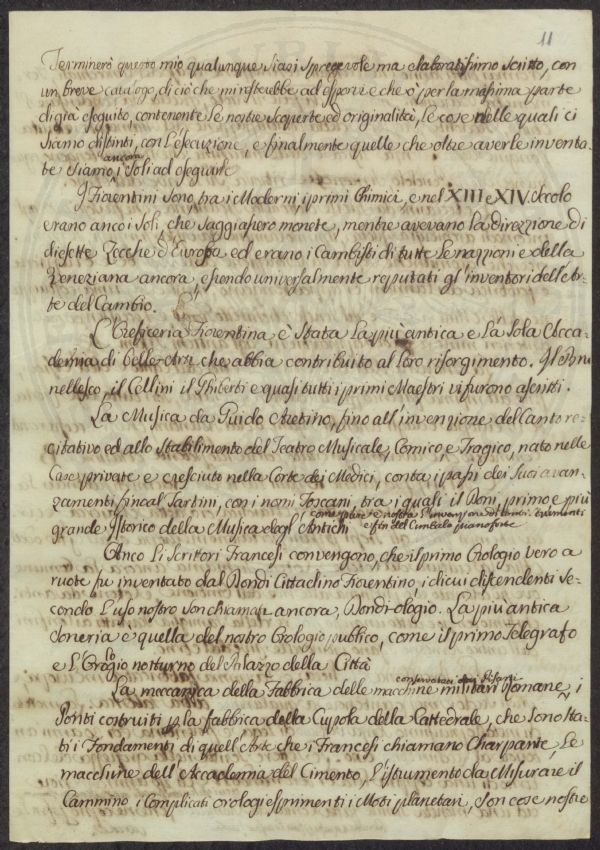 11
Terminerò questo mio qualunque siasi spregevole ma elaboratissimo scritto, con
un breve catalogo, di ciò che mi resterebbe ad esporre e che ò per la massima parte
di già eseguito, contenente le nostre scoperte ed originalità, le cose nelle quali ci
siamo distinti, con l'esecuzione, e finalmente quelle che oltre averle inventa-
te siamo ancora i soli ad eseguirle
I Fiorentini sono, tra i Moderni i primi Chimici, e nel XIII e XIV. secolo
erano anco i soli, che saggiassero monete, mentre avevano la direzzione di
diesette Zecche d'Europa ed erano i Cambisti di tutte le nazzioni e della
Veneziana ancora, essendo universalmente reputati gl'inventori dell'Ar-
te del Cambio.
L'Oreficeria Fiorentina è stata la più antica e la sola Acca-
demia di belle Arti che abbia contribuito al loro risorgimento. Il Bru
nellesco, il Cellini il Ghiberti e quasi tutti i primi Maestri vi furono ascritti.
La Musica da Guido Aretino, fino all'invenzione del Canto re-
citativo ed allo stabilimento del Teatro Musicale, Comico, e Tragico, nato nelle
Case private e cresciuto nella Corte dei Medici, conta i passi dei suoi avan-
zamenti fino al Tartini, con i nomi Toscani, tra i quali il Doni, primo e più
grande Istorico della Musica degl'Antichi come pure è nostra l'invenzione di tanti strumenti
e fin del Cimbalo pianoforte
Anco li Scrittori Francesi convengono, che il primo Orologio vero a
ruote fu inventato dal Dondi Cittadino Fiorentino, i di cui discendenti se-
condo l'uso nostro son chiamati ancora, Dondi-ologio. La più antica
soneria è quella del nostro Orologio publico, come il primo Telegrafo
e l'Orologio notturno del Palazzo della Città
La meccanica della Fabbrica delle macchine militari Romane, conservataci dai Pisani i
Ponti costruiti p la fabbrica della Cupola della Cattedrale, che sono sta-
ti i Fondamenti di quell'Arte che i Francesi chiamano Charpante, le
macchine dell'Accademia del Cimento, l'istrumento da Misurare il
Cammino i Complicati orologi esprimenti i Moti planetari, son cose nostre